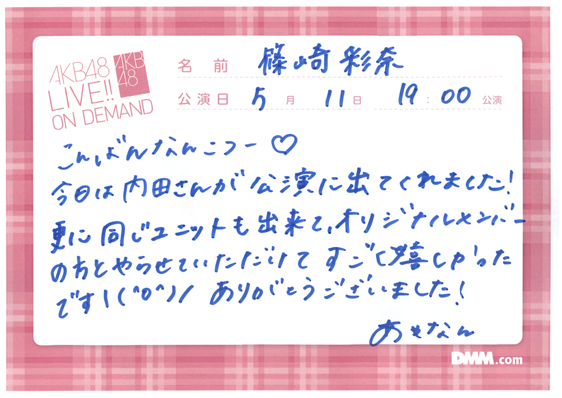 AKB48
LIVE!!
ON DEMAND
AKB
48
名 前 篠崎彩奈
公演日 5月 11日 19:00 公演
こんばんなんこつー♡
今日は内田さんが公演に出てくれました!
更に同じユニットも出来て、オリジナルメンバー
の方とやらせていただけてすごく嬉しかった
です\(^o^)/ ありがとうございました!
あやなん
DMM.com